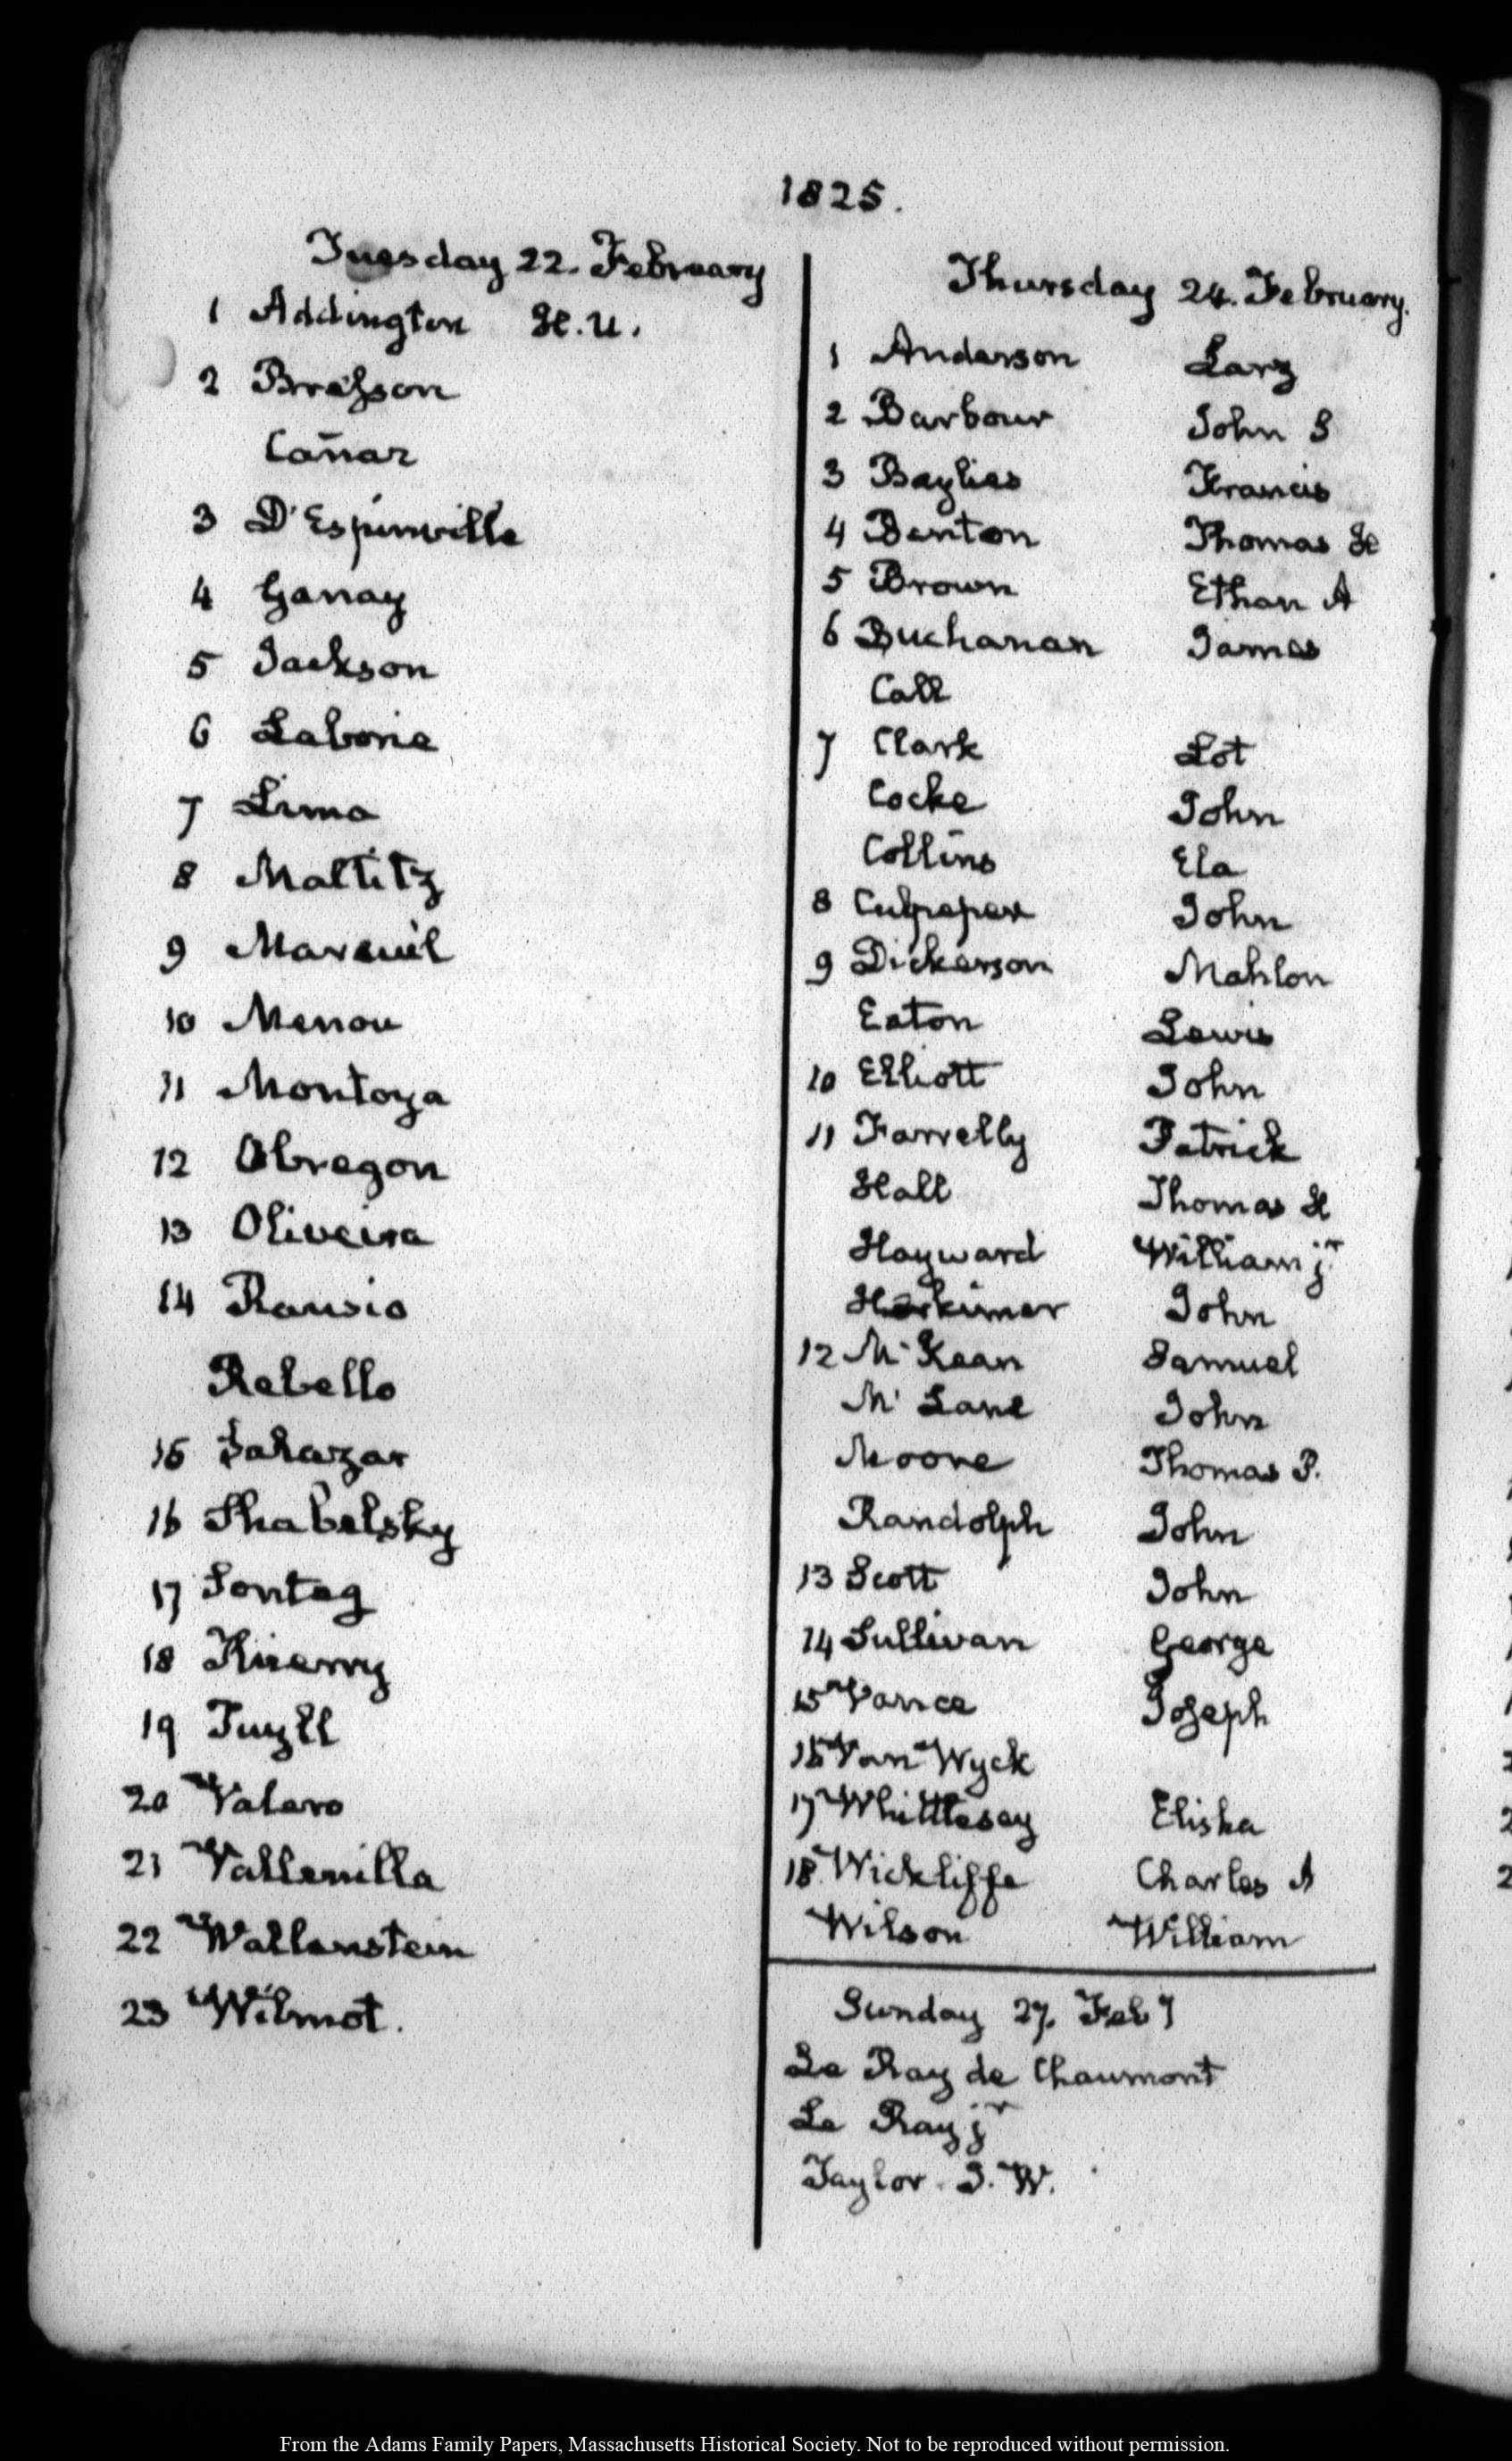 1825.
Tuesday 22. February
1 Addington H. U.
2 Bresson
Cañaz
3 D'Espinville
4 Ganay
5 Jackson
6 Laborie
7 Lima
8 Maltitz
9 Mareuil
10 Menou
11 Montoya
12 Obregon
13 Oliveira
14 Rousio
Rebello
15 Salazar
16 Shabelsky
17 Sontag
18
19 Tuyll
20 Valero
21 Vallenilla
22 Wallenstein
23 Wilmot.
Thursday 24. February.
1 Anderson Larz
2 Barbour John S
3 Baylies Francis
4 Benton Thomas H
5 Brown Ethan A
6 Buchanan James
Call
7 Clark Lot
Cocke John
Collins Ela
8 Culpeper John
9 Dickerson Mahlon
Eaton Lewis
10 Elliott John
11 Farrelly Patrick
Hall Thomas H
Hayward William jr
Herkimer John
12 Mc Kean Samuel
Mc Lane John
Moore Thomas P.
Randolph John
13 Scott John
14 Sullivan George
15 Vance Joseph
16 Van Wyck
17 Whittlesey Elisha
18 Wickliffe Charles A
Wilson William
Sunday 27. Feby
Le Ray de Chaumont
Le Ray jr
Taylor. J. W.
From the Adams Family Papers, Massachusetts Historical Society. Not to be reproduced without permission.